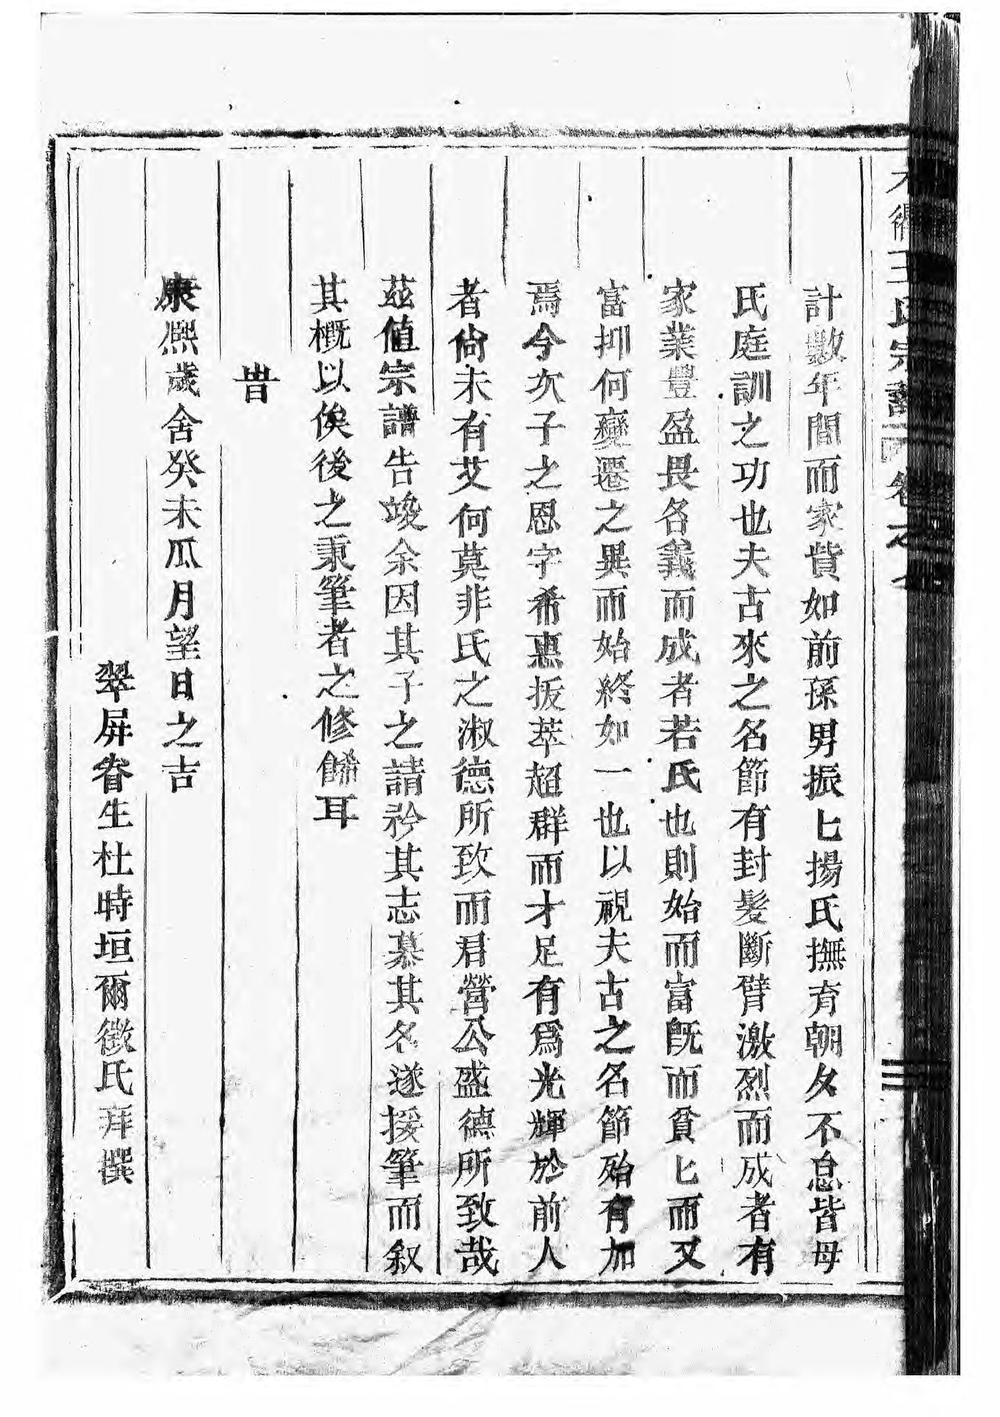 王氏宗譜 卷之
計數年間而家貲如前孫男振匕揚氏撫育朝夕不怠皆母
氏庭訓之功也夫古來之名節有封髮斷臂激烈而成者有
家業豐盈畏名義而成者若氏也則始而富旣而貧匕而又
富抑何變遷之異而始終如一也以視夫古之名節殆有加
焉今次子之恩字希惠拔萃超群而才足有爲光輝於前人
者尙未有艾何莫非氏之淑德所致而君營公盛德所致哉
茲値宗譜告竣余因其子之請矜其志慕其名遂援筆而叙
其槪以俟後之秉筆者之修餙耳
旹
康熙歲舍癸未瓜月望日之吉
翠屏眷生杜時垣爾徵氏拜撰